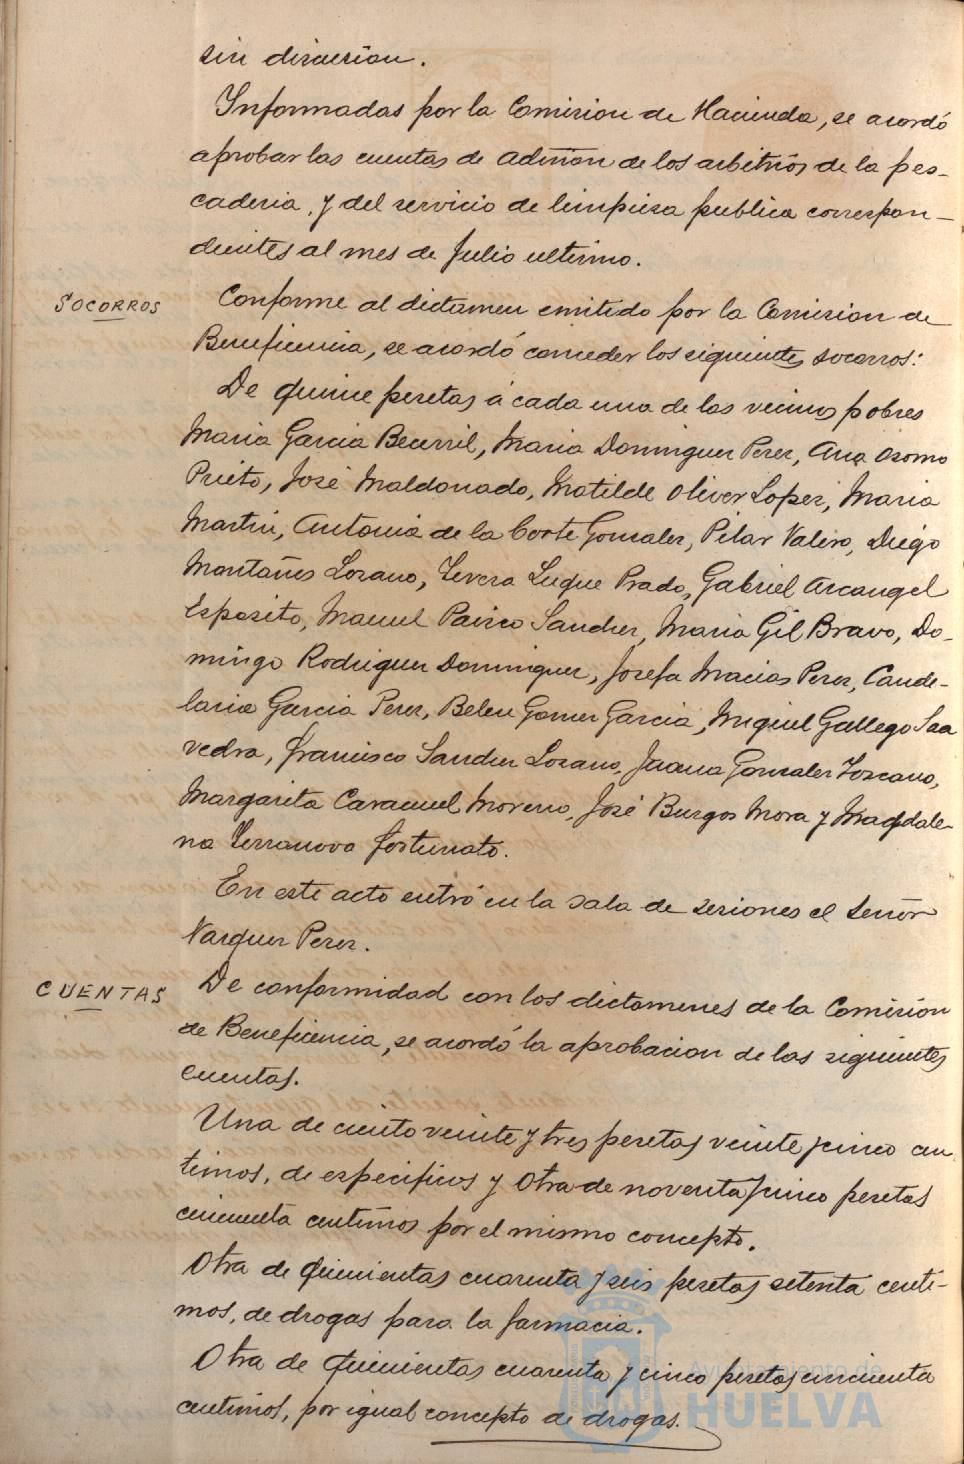 sin discusion.
Informadas por la Comision de Hacienda, se acordó
aprobar las cuentas de admon de los arbitrios de la pes-
caderia, y del servicio de limpieza publica correspon-
dientes al mes de Julio ultimo.
SOCORROS
Conforme al dictamen emitido por la Comision de
Beneficencia, se acordó conceder los siguientes socorros:
De quince pesetas á cada una de los vecinos pobres
Maria Garcia Becerril, Maria Dominguez Perez, Ana Osorno
Prieto, José Maldonado, Matilde Oliver Lopez, Maria
Martin, Antonia de la Corte Gonzalez, Pilar Valero, Diego
Montañes Lozano, Severa Luque Prado, Gabriel Arcangel
Esposito, Manuel Sanchez, Maria Gil Bravo, Do-
mingo Rodriguez Dominguez, Josefa Macias Perez, Cande-
laria Garcia Perez, Belen Gomez Garcia, Miguel Gallego Saa
vedra, Francisco Sanchez Lozano, Juana Gonzalez Toscano,
Margarita Caramuel Moreno, José Burgos Mora y Magdale-
na Terranova Fortunato.
En este acto entró en la sala de sesiones el Señor
Vazquez Perez.
CUENTAS
De conformidad con los dictamenes de la Comision
de Beneficencia, se acordó la aprobacion de las siguientes
cuentas.
Una de ciento veinte y tres pesetas veinte y cinco cen
timos, de especificos y otra de noventa y cinco pesetas
cincuenta centimos por el mismo concepto.
Otra de quinientas cuarenta y seis pesetas setenta centi-
mos, de drogas para la farmacia.
Otra de quinientas cuarenta y cinco pesetas cincuenta
centimos, por igual concepto de drogas.
Ayuntamiento de
HUELVA